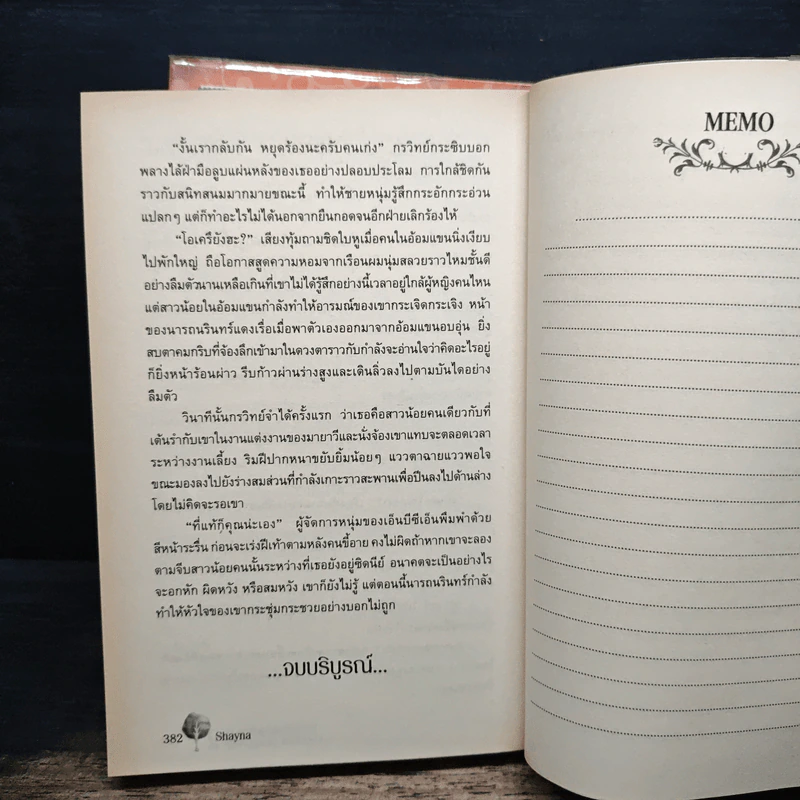 “งั้นเรากลับกัน หยุดร้องนะครับคนเก่ง” กรวิทย์กระซิบบอก
พลางไล้ฝ่ามือลูบแผ่นหลังของเธออย่างปลอบประโลม การใกล้ชิดกัน
ราวกับสนิทสนมมากมายขณะนี้ ทำให้ชายหนุ่มรู้สึกกระอักกระอ่วน
แปลกๆ แต่ก็ทำอะไรไม่ได้นอกจากยืนกอดจนอีกฝ่ายเลิกร้องไห้
“โอเครึยังฮะ?” เสียงทุ้มถามชิดใบหูเมื่อคนในอ้อมแขนนิ่งเงียบ
ไปพักใหญ่ ถือโอกาสสูดความหอมจากเรือนผมนุ่มสลวยราวไหมชั้นดี
อย่างลืมตัวนานเหลือเกินที่เขาไม่ได้รู้สึกอย่างนี้เวลาอยู่ใกล้ผู้หญิงคนไหน
แต่สาวน้อยในอ้อมแขนกำลังทำให้อารมณ์ของเขากระเจิดกระเจิง หน้า
ของนารถนรินทร์แดงเรื่อเมื่อพาตัวเองออกมาจากอ้อมแขนอบอุ่น ยิ่ง
สบตาคมกริบที่จ้องลึกเข้ามาในดวงตาราวกับกำลังจะอ่านใจว่าคิดอะไรอยู่
ก็ยิ่งหน้าร้อนผ่าว รีบก้าวผ่านร่างสูงและเดินลิ่วลงไปตามบันไดอย่าง
ลืมตัว
วินาทีนั้นกรวิทย์จำได้ครั้งแรก ว่าเธอคือสาวน้อยคนเดียวกับที่
เต้นรำกับเขาในงานแต่งงานของมายาวีและนั่งจ้องเขาแทบจะตลอดเวลา
ระหว่างงานเลี้ยง ริมฝีปากหนาขยับยิ้มน้อยๆ แววตาฉายแววพอใจ
ขณะมองลงไปยังร่างสมส่วนที่กำลังเกาะราวสะพานเพื่อปีนลงไปด้านล่าง
โดยไม่คิดจะรอเขา
“ที่แท้ก็คุณน่ะเอง” ผู้จัดการหนุ่มของเอ็นบีซีเอ็นพึมพำด้วย
สีหน้าระรื่น ก่อนจะเร่งฝีเท้าตามหลังคนขี้อาย คงไม่ผิดถ้าหากเขาจะลอง
ตามจีบสาวน้อยคนนั้นระหว่างที่เธอยังอยู่ซิดนีย์ อนาคตจะเป็นอย่างไร
จะอกหัก ผิดหวัง หรือสมหวัง เขาก็ยังไม่รู้ แต่ตอนนี้นารถนรินทร์กำลัง
ทำให้หัวใจของเขากระชุ่มกระชวยอย่างบอกไม่ถูก
...จบบริบูรณ์...
382 Shayna
MEMO